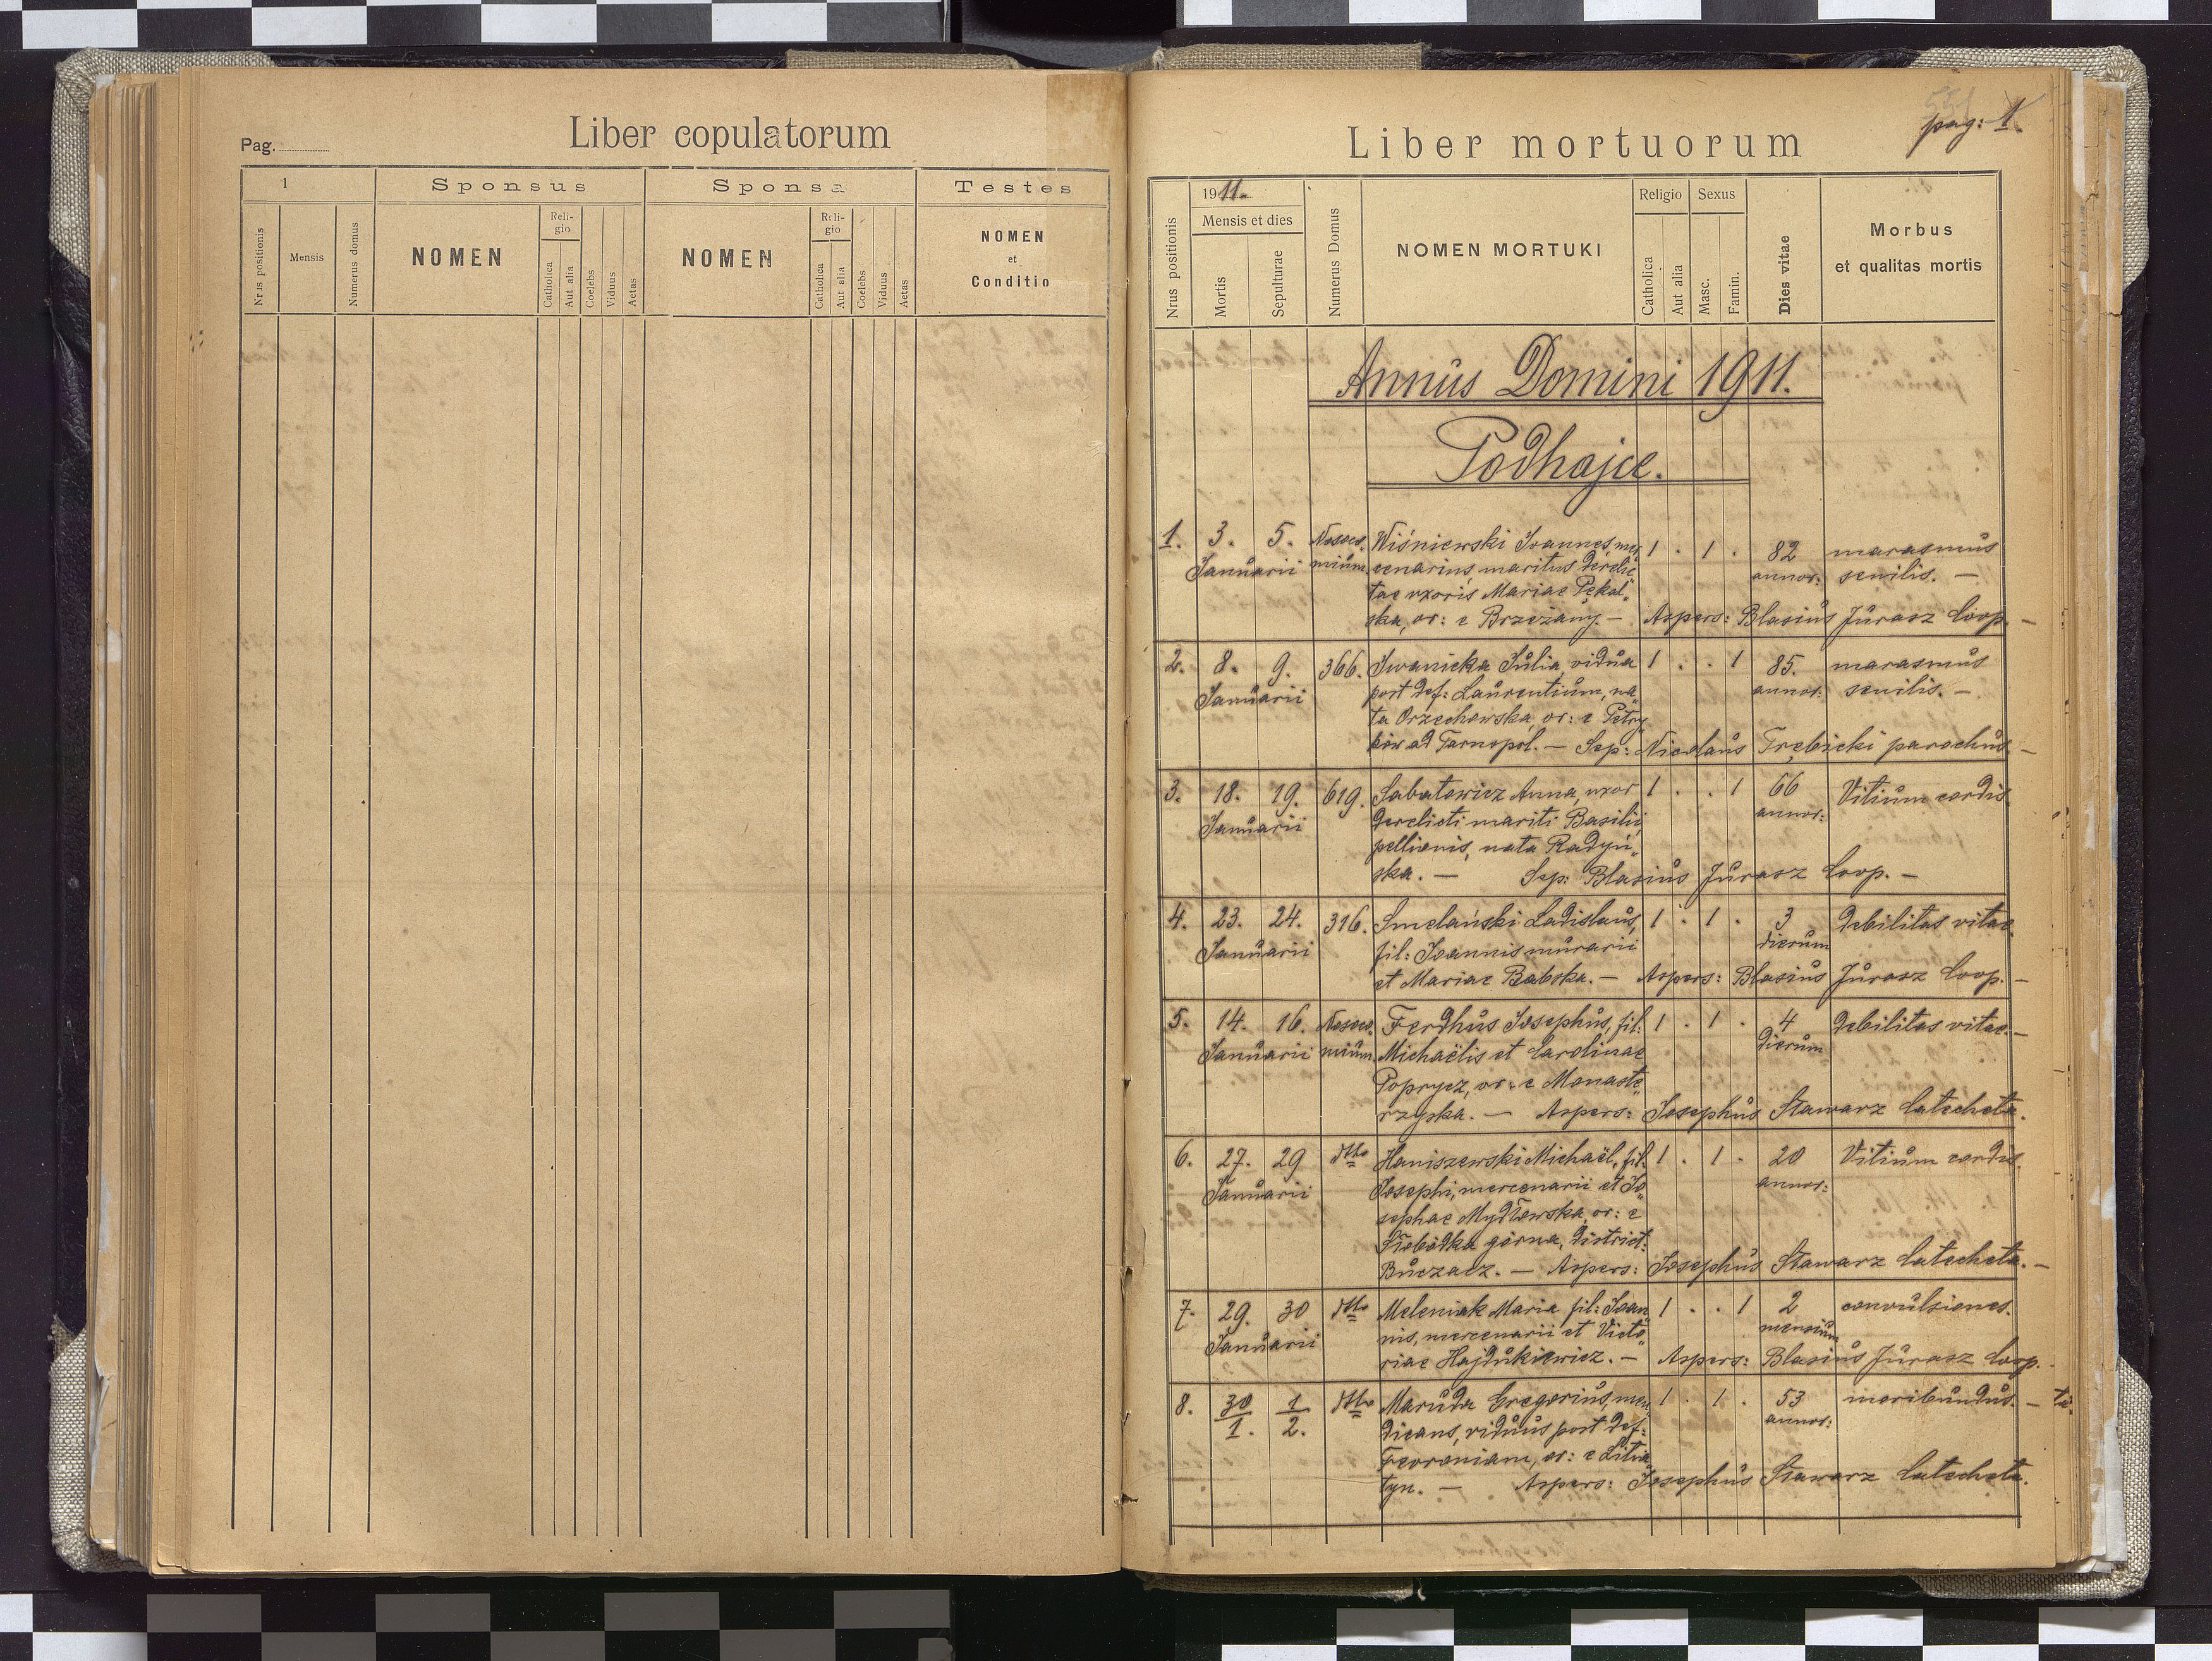 Pag.
Liber copulatorum
1
Sponsus
Sponsa
Testes
Nrus positionis
Mensis
Numerus domus
NOMEN
Reli-
gio
Catholica
Aut alia
Coelebs
Viduus
Aetas
NOMEN
Reli-
gio
Catholica
Aut alia
Coelebs
Viduus
Aetas
NOMEN
et
Conditio
pag: 1.
Liber mortuorum
Nrus positionis
1911.
Mensis et dies
Mortis
Sepulturae
Numerus Domus
NOMEN MORTUKI
Religio
Catholica
Aut alia
Sexus
Masc.
Famin.
Dies vitae
Morbus
et qualitas mortis
Annus Domini 1911.
Podhajce.
1. 3. 5. Nosoco„ Wiśniewski Joannes, mer„ 1 . 1 . 82 marasmus
Januarii mium. cenarius, maritus derelic„ annor: senilis. —
tae uxoris Mariae Pękal„
ska, or: e Brzeżany. — Aspers: Blasius Jurasz Coop. —
2. 8. 9. 366. Iwanicka Julia vidua 1 . . 1 85. marasmus
Januarii post def: Laurentium, na„ annor: senilis. —
ta Orzechowska, or: e Petry„
ków ad Tarnopól. — Sep: Nicolaus Trębicki parochus. —
3. 18. 19. 619. Sabatowicz Anna, uxor 1 . . 1 66 Vitium cordis.
Januarii derelicti mariti Basilii, annor:
pellionis, nata Radyń„
ska. — Sep: Blasius Jurasz Coop. —
4. 23. 24. 316. Smelański Ladislaus, 1 . 1 . 3 debilitas vitae.
Januarii fil: Joannis murarii dierum
et Mariae Babska. — Aspers: Blasius Jurasz Coop. —
5. 14. 16. Nosoco„ Ferdhus Josephus, fil: 1 . 1 . 4 debilitas vitae. —
Januarii mium. Michaëlis et Carolinae dierum
Poprycz, or: e Monaste„
rzyska. — Aspers: Josephus Stawarz Catecheta.
6. 27. 29 dtto Haniszewski Michaël, fil: 1 . 1 . 20 Vitium cordis.
Januarii Josephi, mercenarii et Jo„ annor:
sephae Mydłowska, or: e
Słobódka górna, district:
Buczacz. — Aspers: Josephus Stawarz Catecheta. —
7. 29. 30 dtto Meleniak Maria fil: Joan„ 1 . . 1 2 convulsiones.
Januarii nis, mercenarii et Victo„ mensium
riae Hajdukiewicz. — Aspers: Blasius Jurasz Coop.
8. 30/1. 1/2. dtto Maruda Gregorius, men„ 1 . 1 . 53 moribundus. —
dicans, viduus post def: annor:
Fevroniam, or: e Litwia„
tyn. — Aspers: Josephus Stawarz Catecheta.